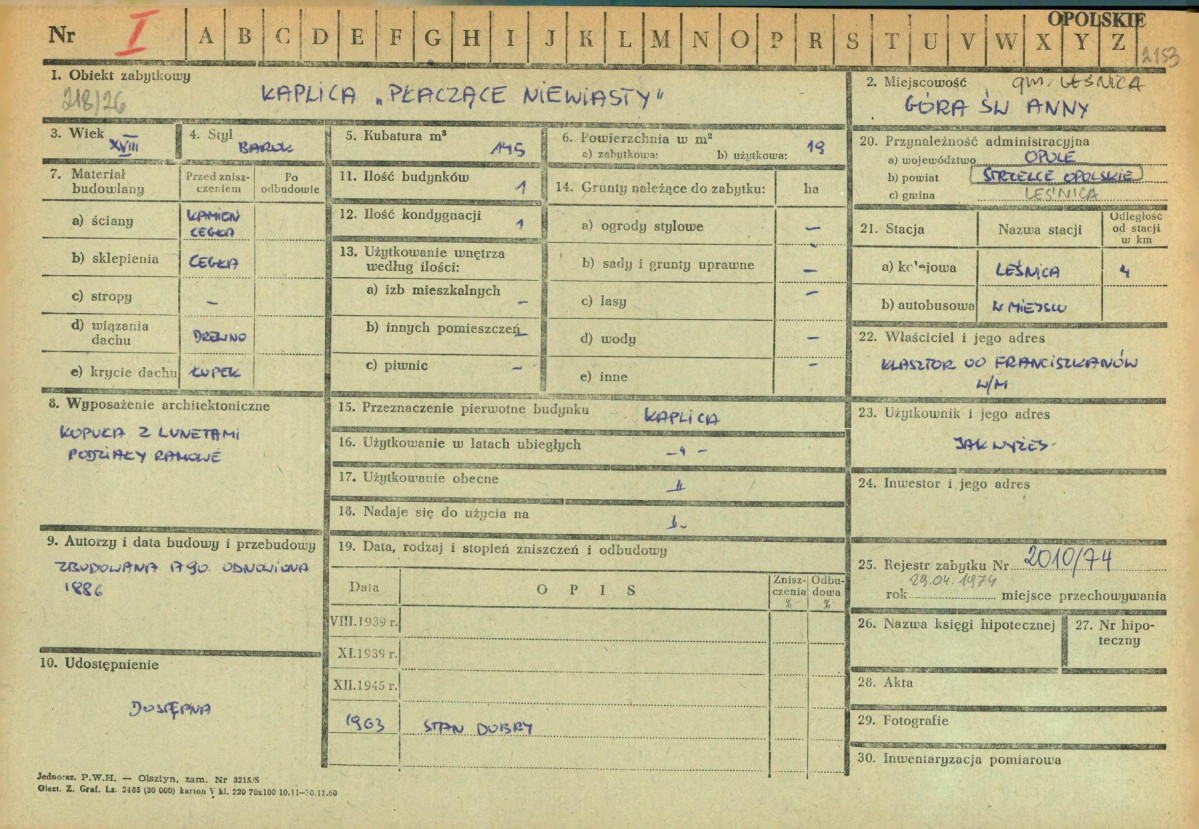 OPOLSKIE
Nr I A B C D E F G H I J K L M N O P R S T U V W X Y Z
2153
1. Obiekt zabytkowy
218/26
KAPLICA „PŁACZĄCE NIEWIASTY”
2. Miejscowość gm. LEŚNICA
GÓRA ŚW ANNY
3. Wiek
XVIII
4. Styl
BAROK
5. Kubatura m³
145
6. Powierzchnia w m²
a) zabytkowa: b) użytkowa: 19
7. Materiał budowlany
Przed zniszczeniem
Po odbudowie
a) ściany KAMIEŃ
CEGŁA
b) sklepienia CEGŁA
c) stropy –
d) wiązania dachu DREWNO
e) krycie dachu ŁUPEK
11. Ilość budynków 1
12. Ilość kondygnacji 1
13. Użytkowanie wnętrza
według ilości:
a) izb mieszkalnych –
b) innych pomieszczeń –
c) piwnic –
14. Grunty należące do zabytku: ha
a) ogrody stylowe –
b) sady i grunty uprawne –
c) lasy –
d) wody –
e) inne –
20. Przynależność administracyjna
a) województwo OPOLE
b) powiat STRZELCE OPOLSKIE
c) gmina LEŚNICA
21. Stacja Nazwa stacji Odległość od stacji w km
a) kolejowa LEŚNICA 4
b) autobusowa W MIEJSCU
22. Właściciel i jego adres
KLASZTOR OO FRANCISZKANÓW
W/M
8. Wyposażenie architektoniczne
KOPUŁA Z LUNETAMI
PODZIAŁY RAMOWE
15. Przeznaczenie pierwotne budynku KAPLICA
16. Użytkowanie w latach ubiegłych –„–
17. Użytkowanie obecne „
18. Nadaje się do użycia na
23. Użytkownik i jego adres
JAK WYŻEJ
24. Inwestor i jego adres
9. Autorzy i data budowy i przebudowy
ZBUDOWANA 1790 ODNOWIONA
1886
19. Data, rodzaj i stopień zniszczeń i odbudowy
Data OPIS Zniszczenia % Odbudowa %
VIII.1939 r.
XI.1939 r.
XII.1945 r.
1963 STAN DOBRY
25. Rejestr zabytku Nr 2010/74
rok 29.04.1974 miejsce przechowywania
26. Nazwa księgi hipotecznej
27. Nr hipoteczny
28. Akta
29. Fotografie
30. Inwentaryzacja pomiarowa
10. Udostępnienie
DOSTĘPNA
Jednoraz. P.W.H. — Olsztyn, zam. Nr 3215/S
Olszt. Z. Graf. Lz. 2485 (30 000) karton V kl. 220 70x100 10.11—30.11.60